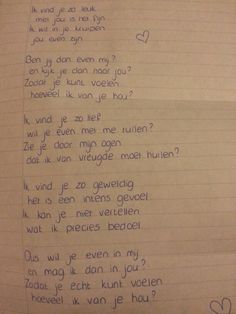 Ik vind je zo leuk
met jou is het fijn
Ik wil in je kruipen
jou even zijn.
Ben jij dan even mij?
en kijk je dan naar jou?
Zodat je kunt voelen
hoeveel ik van je hou?
Ik vind je zo lief
wil je even met me ruilen?
Zie je door mijn ogen
dat ik van vreugde moet huilen?
Ik vind je zo geweldig
het is een intens gevoel
Ik kan je niet vertellen
wat ik precies bedoel
Dus wil je even in mij
en mag ik dan in jou?
Zodat je echt kunt voelen
hoeveel ik van je hou?